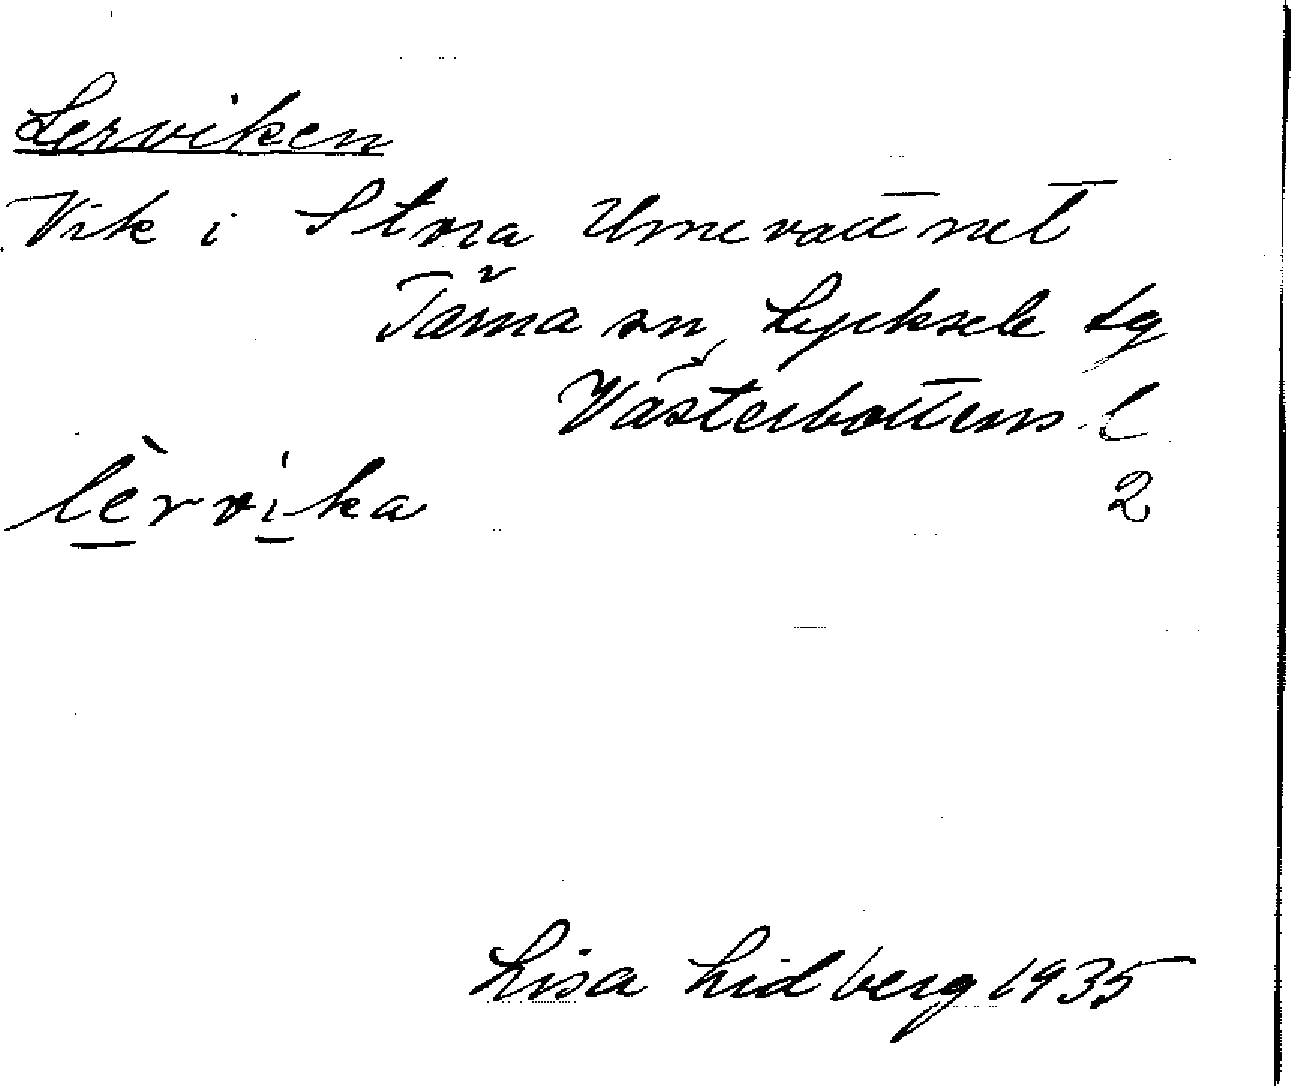 Lerviken
Vik i Stora Umevattnet
Tärna sn, Lycksele tg
Västerbottens l
lèrvika 2
Lisa Lidberg 1935